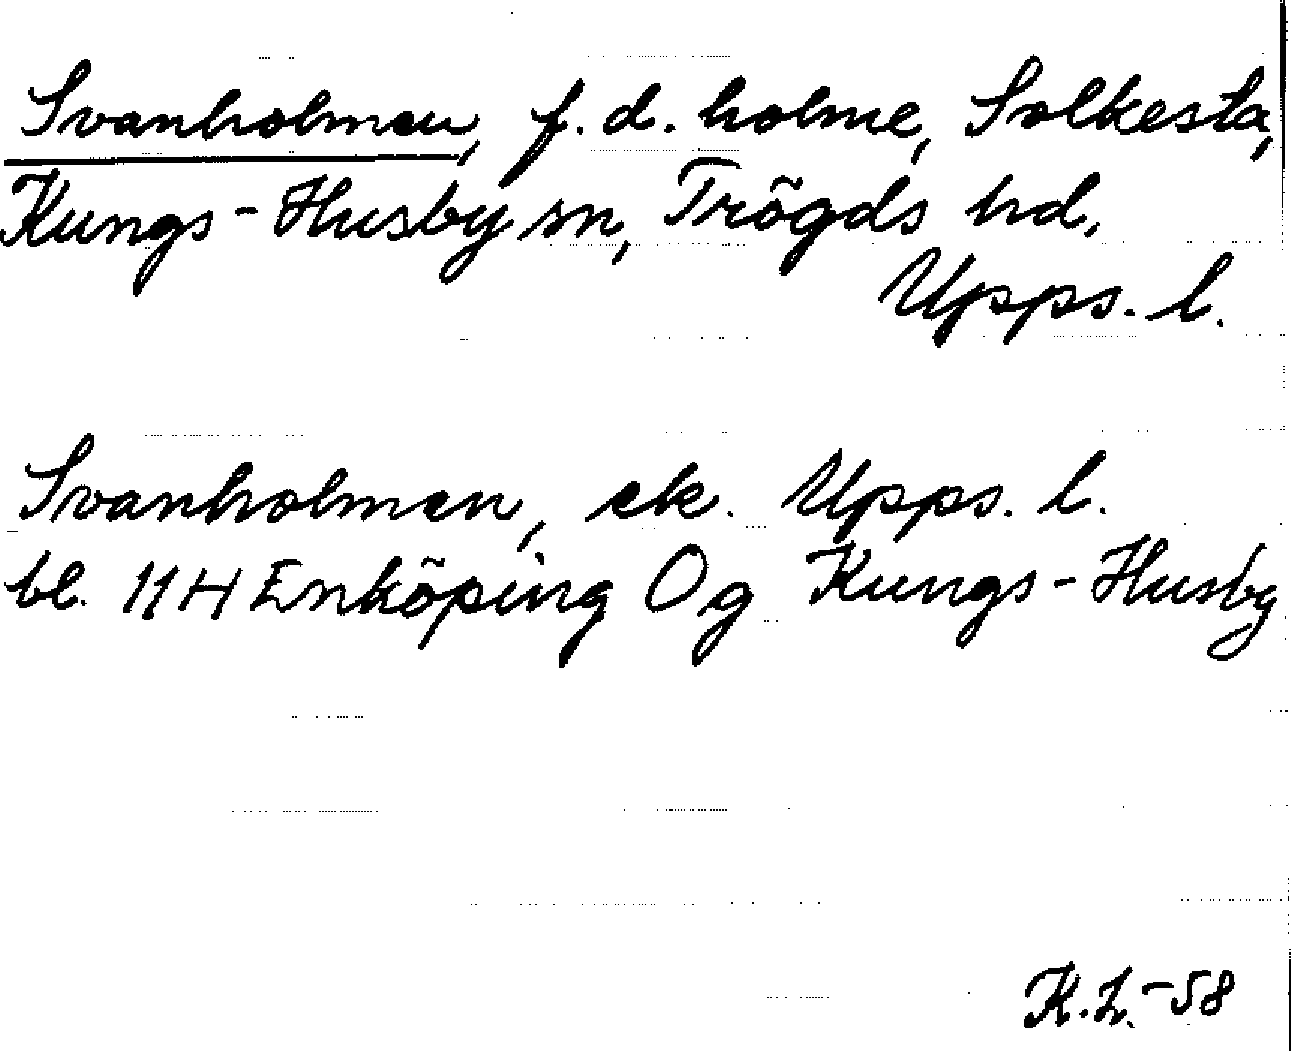 Svanholmen, f.d. holme, Solkesta,
Kungs-Husby sn, Trögds hd,
Upps. l.
Svanholmen, ek. Upps. l.
bl. 11 H Enköping Og Kungs-Husby
K.L.-58